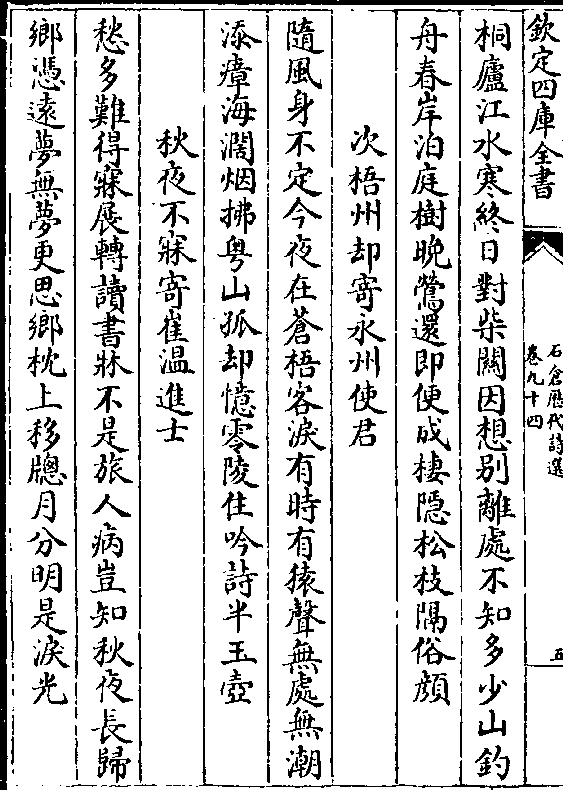 欽定四庫全書
石倉歷代詩選
卷九十四
五
桐廬江水寒終日對柴關因想别離處不知多少山釣
舟春岸泊庭樹晩鶯還即便成棲隠松枝隔俗顔
次梧州却寄永州使君
隨風身不定今夜在蒼梧客淚有時有猿聲無處無潮
添瘴海濶烟拂粤山孤却憶零陵住吟詩半玉壺
秋夜不寐寄崔温進士
愁多難得寐展轉讀書牀不是旅人病豈知秋夜長歸
鄉憑逺夢無夢更思鄉枕上移牕月分明是淚光